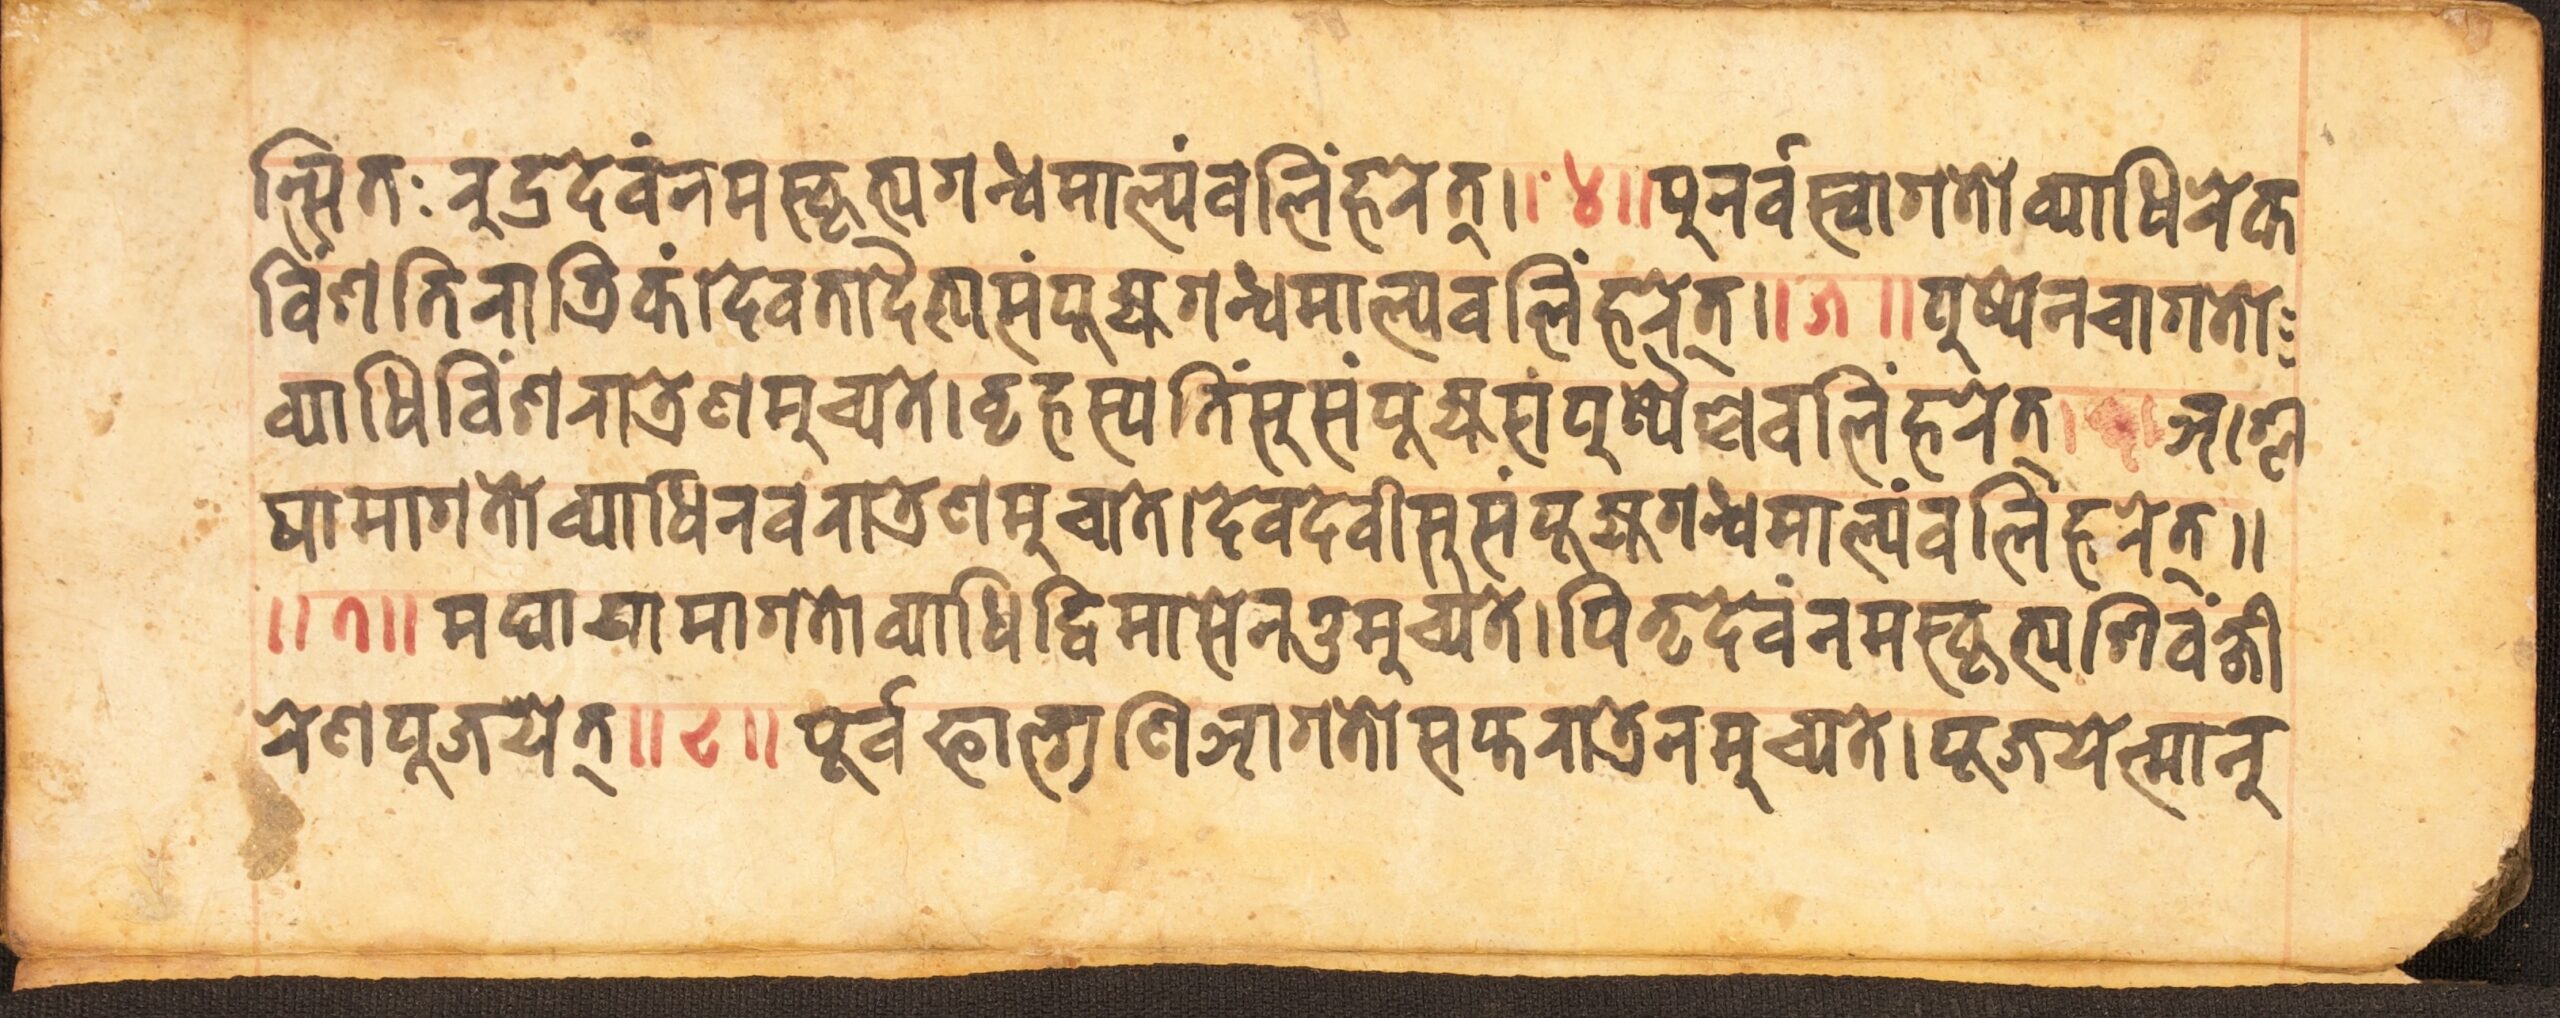 न्मितः रुद्रदेवंनमस्कृत्यगन्धमाल्यंवलिंहरेत्॥ ४॥ पुनर्वस्वागतोव्याधिरेक
विंशतिरात्रिकं।देवतादैत्यसंपूज्यगन्धमाल्यवलिंहरेत्॥ ॥ पुष्येनचागतोः
व्याधिविंशरात्रेणमुच्यते।वृहस्पतिंसुसंपूज्यसंपुष्पैश्चवलिंहरेत्। अश्ले
षामागतोव्याधिनवरात्रेणमुच्यते।देवदेवीसुसंपूज्यगन्धमाल्यंवलिंहरेत्॥
॥ ७॥ मघायामागतोव्याधिद्विमासेनतुमुच्यते।पितृदेवंनमस्कृत्यशिवंक्षी
रेणपूजयेत्॥ ८॥ पूर्वफाल्गुणिआगतोसप्तरात्रेनमुच्यते।पूजयेत्मानु